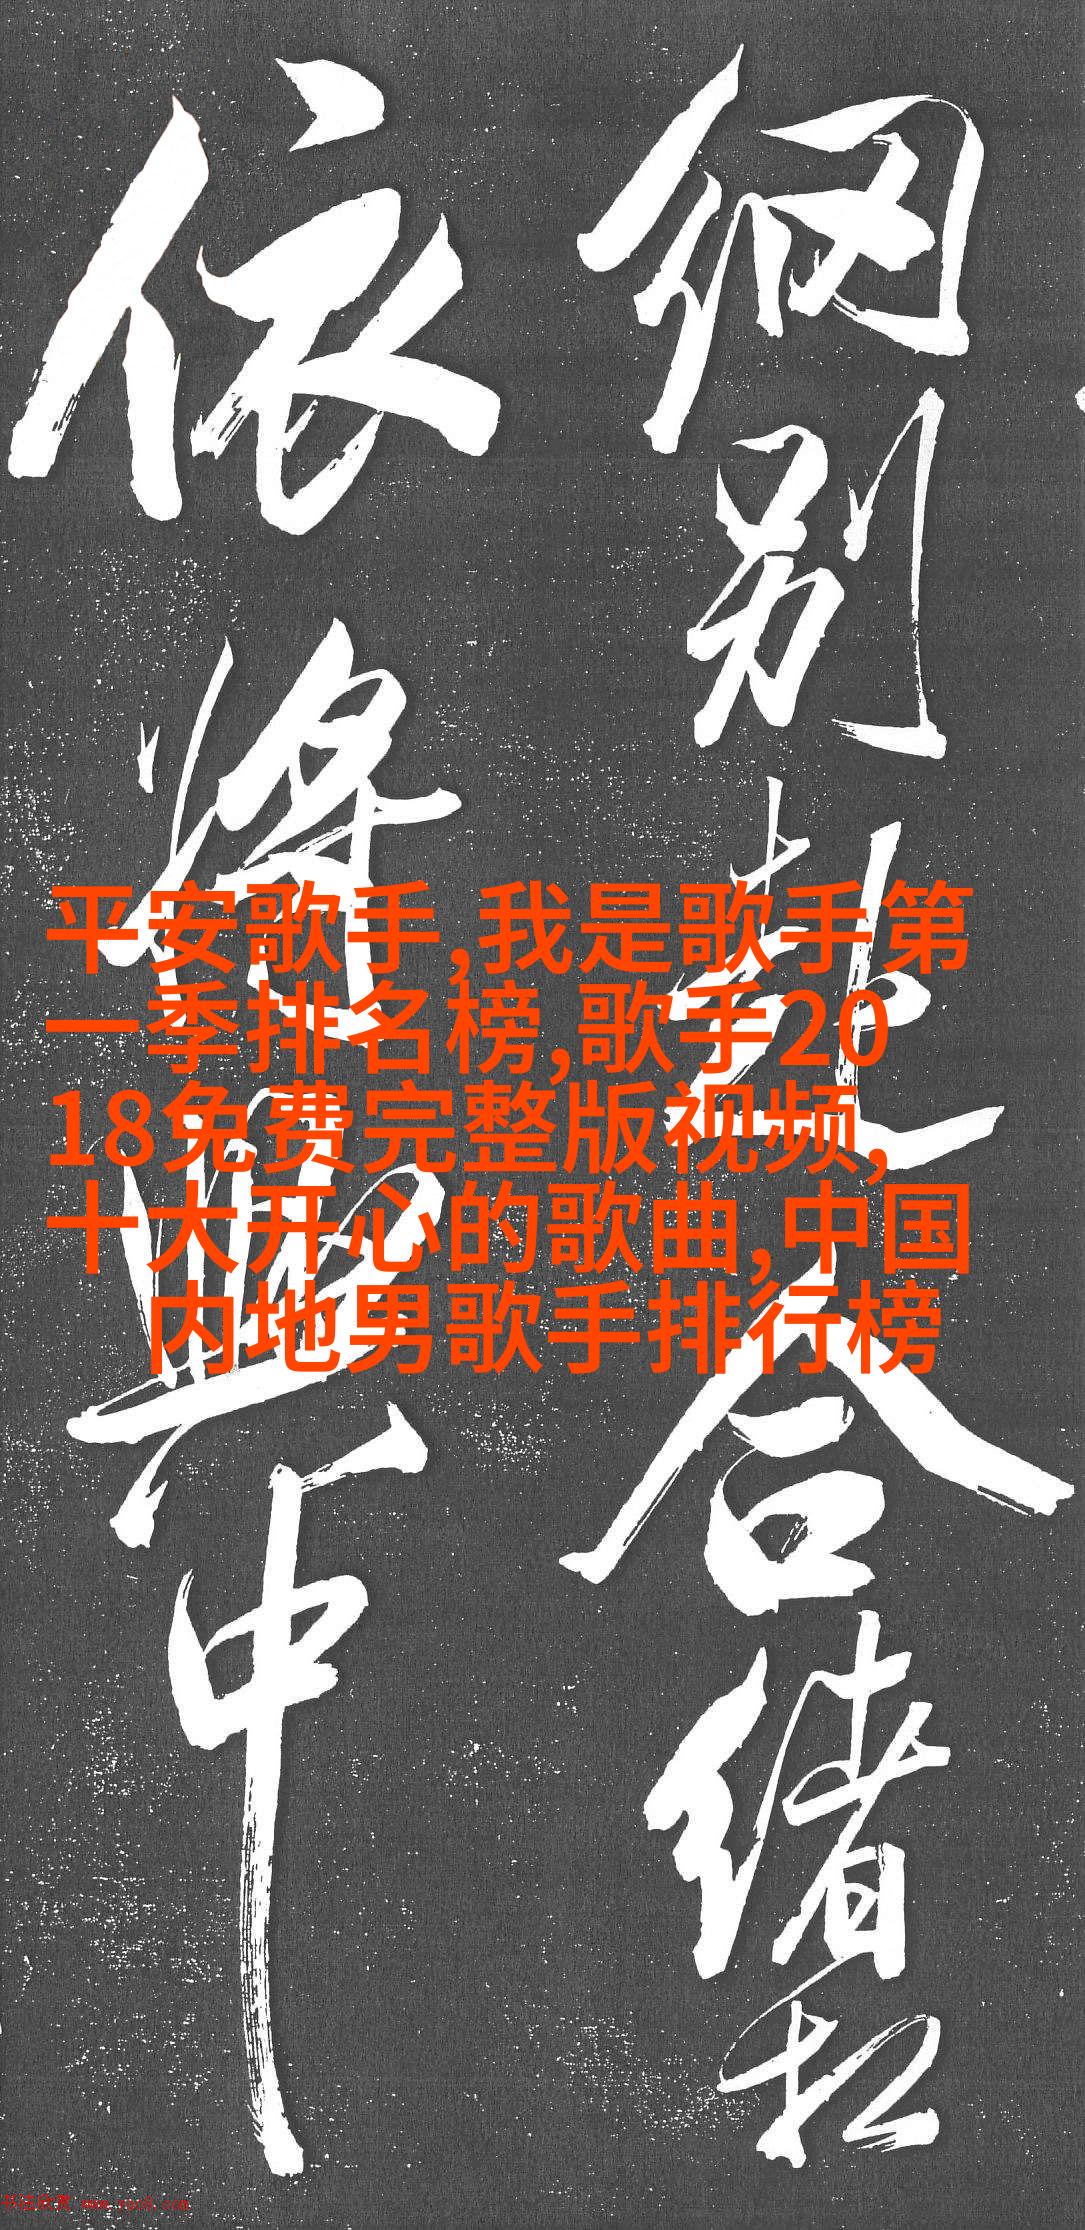 细别赴合绪松
依将与中
平安歌手,我是歌手第
一季排名榜,歌手20
18免费完整版视频,
十大开心的歌曲,中国
内地男歌手排行榜
书法欣赏 www.yac8.com